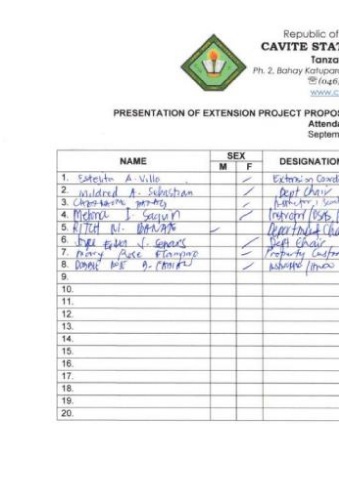 Republic of
CAVITE STAT
Tanza
Ph. 2, Bahay Katupar
(046
www.c
PRESENTATION OF EXTENSION PROJECT PROPOS
Attenda
Septem
NAME SEX DESIGNATION
M F
1. Estelita A. Villo Extension Coord
2. Mildred A. Sebastian Dept Chair
3.
4. Melona I. Saquin Instructor
5. RITCH M. BANATE Department Chai
6. Dept Chair
7. Mary Rose Property Custo
8.
9.
10.
11.
12.
13.
14.
15.
16.
17.
18.
19.
20.